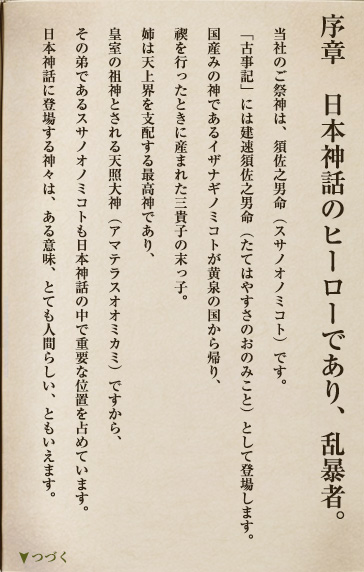 序章　日本神話のヒーローであり、乱暴者。
当社のご祭神は、須佐之男命（スサノオノミコト）です。
「古事記」には建速須佐之男命（たてはやすさのおのみこと）として登場します。
国産みの神であるイザナギノミコトが黄泉の国から帰り、
禊を行ったときに産まれた三貴子の末っ子。
姉は天上界を支配する最高神であり、
皇室の祖神とされる天照大神（アマテラスオオミカミ）ですから、
その弟であるスサノオノミコトも日本神話の中で重要な位置を占めています。
日本神話に登場する神々は、ある意味、とても人間らしい、ともいえます。
▼つづく